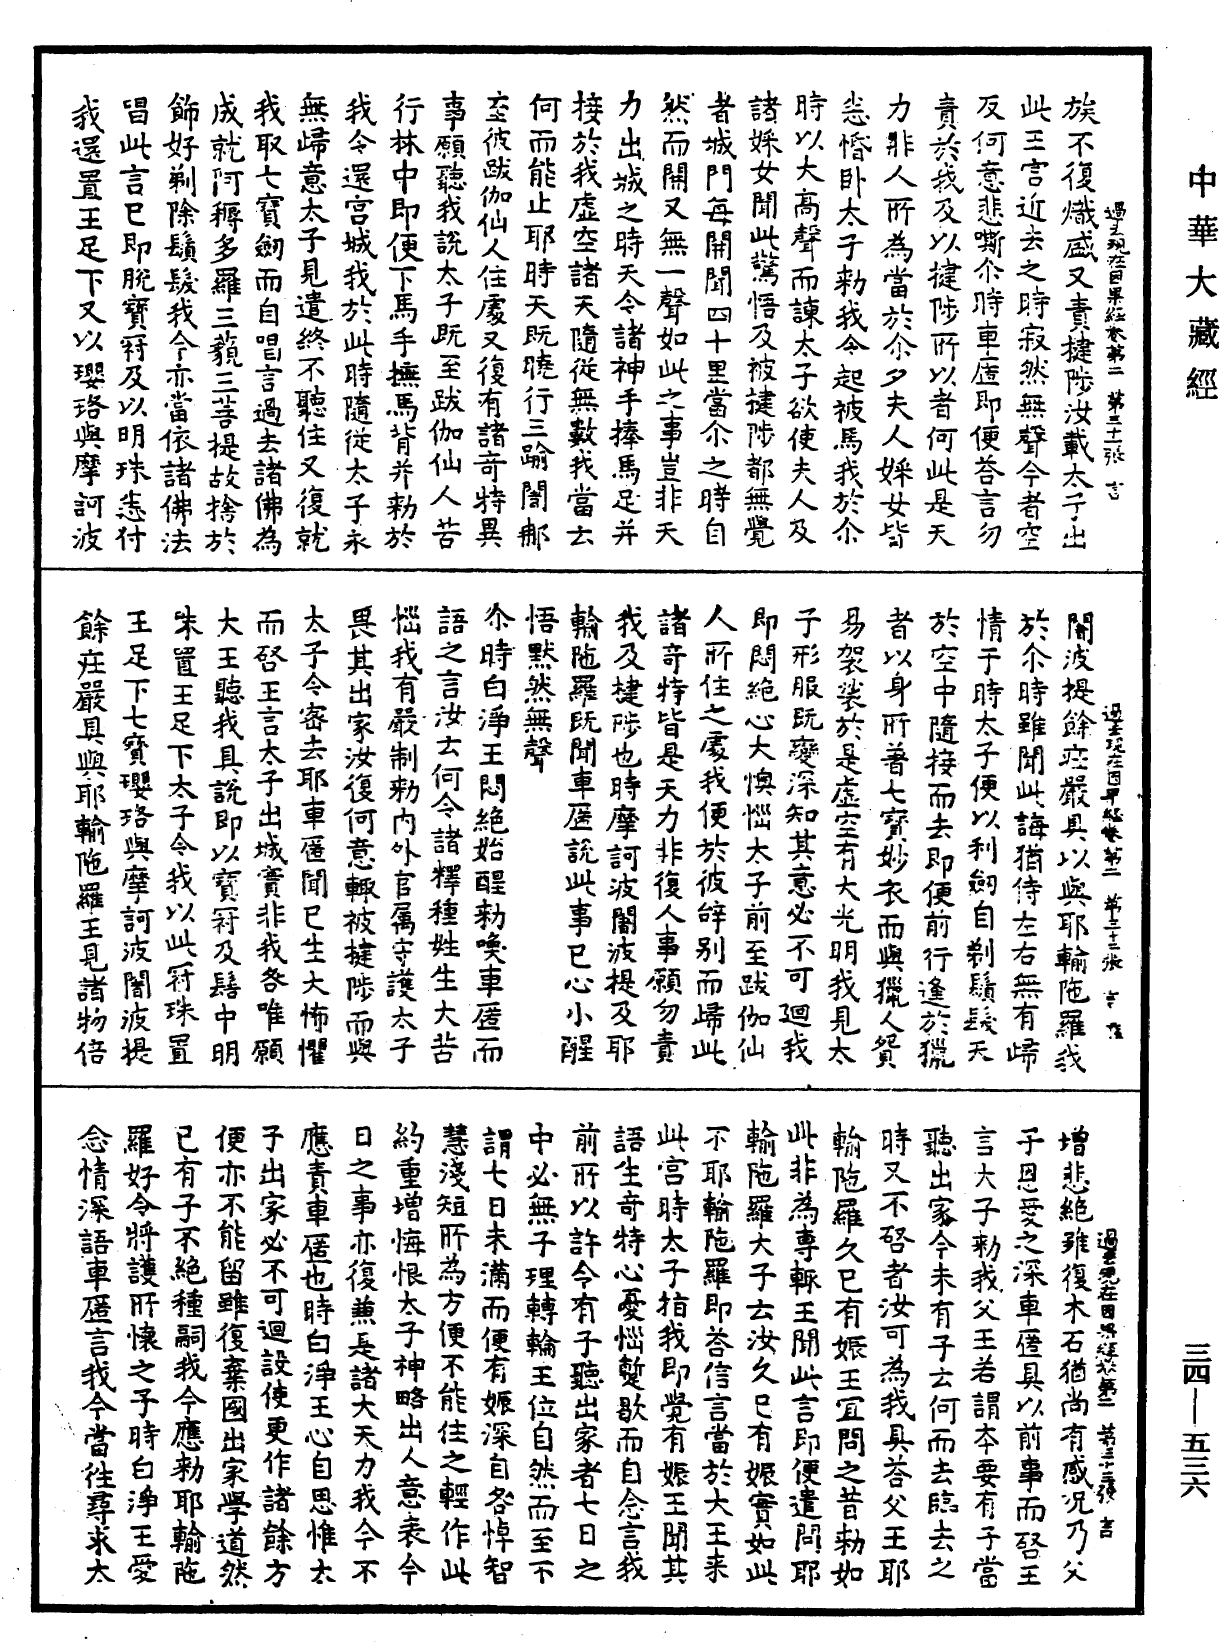 中華大藏經
過去現在因果經卷第二　第三十一張　言
族不復熾盛又責揵陟汝載太子出
此王宮近去之時寂然無聲今者空
反何意悲嘶尒時車匿即便荅言勿
責於我及以揵陟所以者何此是天
力非人所為當於尒夕夫人婇女皆
悉惛卧太子勑我令起被馬我於尒
時以大高聲而諫太子欲使夫人及
諸婇女聞此驚悟及被揵陟都無覺
者城門每開聞四十里當尒之時自
然而開又無一聲如此之事豈非天
力出城之時天令諸神手捧馬足并
接於我虛空諸天隨從無數我當云
何而能止耶時天既曉行三踰闍那
至彼跋伽仙人住處又復有諸奇特異
事願聽我說太子既至跋伽仙人苦
行林中即便下馬手撫馬背并勑於
我令還宮城我於此時隨從太子永
無歸意太子見遣終不聽住又復就
我取七寶劒而自唱言過去諸佛為
成就阿耨多羅三藐三菩提故捨於
飾好剃除鬚髮我今亦當依諸佛法
唱此言已即脫寶冠及以明珠悉付
我還置王足下又以瓔珞與摩訶波
過去現在因果經卷第二　第三十二張　言
闍波提餘莊嚴具以與耶輸陁羅我
於尒時雖聞此誨猶侍左右無有歸
情于時太子便以利劒自剃鬚髮天
於空中隨接而去即便前行逢於獵
者以身所著七寶妙衣而與獵人貿
易袈裟於是虛空有大光明我見太
子形服既變深知其意必不可迴我
即悶絕心大懊惱太子前至跋伽仙
人所住之處我便於彼辝別而歸此
諸奇特皆是天力非復人事願勿責
我及揵陟也時摩訶波闍波提及耶
輸陁羅既聞車匿說此事已心小醒
悟默然無聲
尒時白淨王悶絕始醒勑喚車匿而
語之言汝云何令諸釋種姓生大苦
惱我有嚴制勑內外官属守護太子
畏其出家汝復何意輙被揵陟而與
太子令密去耶車匿聞已生大怖懼
而啓王言太子出城實非我咎唯願
大王聽我具說即以寶冠及髻中明
珠置王足下太子令我以此冠珠置
王足下七寶瓔珞與摩訶波闍波提
餘莊嚴具與耶輸陁羅王見諸物倍
過去現在因果經卷第二　第三十三張　言
增悲絕雖復木石猶尚有感況乃父
子恩愛之深車匿具以前事而啓王
言太子勑我父王若謂本要有子當
聽出家今未有子云何而去臨去之
時又不啓者汝可為我具荅父王耶
輸陁羅久已有娠王宜問之昔勑如
此非為專輙王聞此言即便遣問耶
輸陁羅太子云汝久已有娠實如此
不耶輸陁羅即荅信言當於大王来
此宮時太子指我即覺有娠王聞其
語生奇特心憂惱蹔歇而自念言我
前所以許令有子聽出家者七日之
中必無子理轉輪王位自然而至不
謂七日未滿而便有娠深自咎悼智
慧淺短所為方便不能住之輕作此
約重增悔恨太子神略出人意表今
日之事亦復兼是諸大天力我今不
應責車匿也時白淨王心自思惟太
子出家必不可迴設使更作諸餘方
便亦不能留雖復棄國出家學道然
已有子不絕種嗣我今應勑耶輸陁
羅好令將護所懷之子時白淨王愛
念情深語車匿言我今當往尋求太
三四—五三六